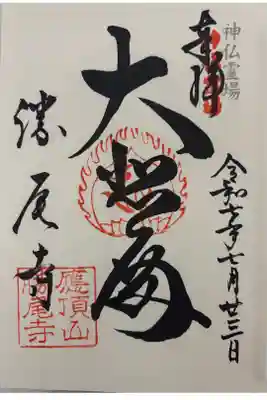 神仏霊場
奉拝
令和七年七月廿三日
大悲
勝尾寺
應頂山
勝尾寺